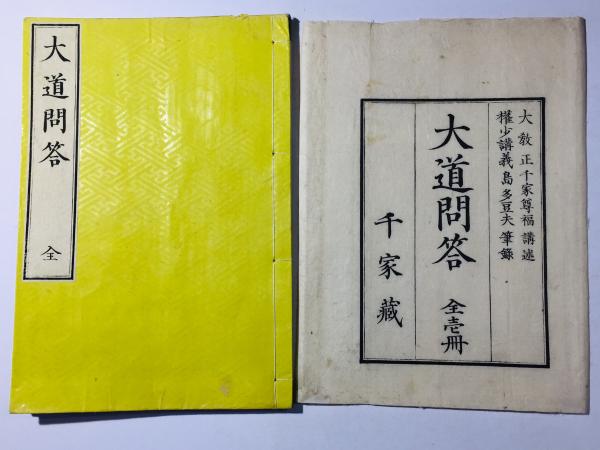 大道問答
全
大教正千家尊福講述
權少講義島多豆夫筆錄
大道問答
全壱冊
千家藏